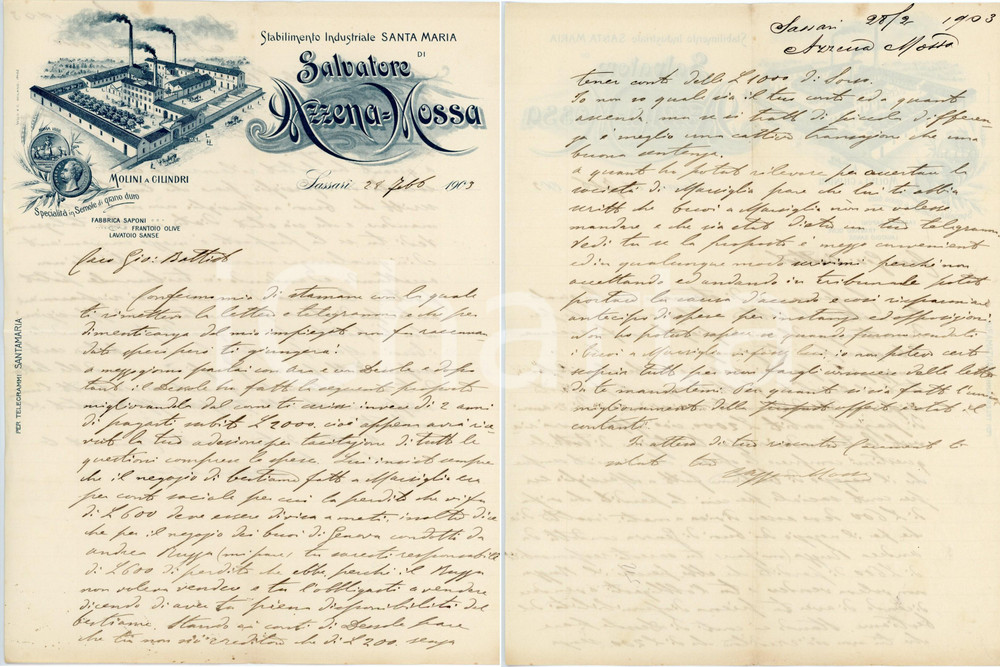 Stabilimento Industriale SANTA MARIA
DI
Salvatore
Azzena=Mossa
MOLINI A CILINDRI
Specialità in Semole di grano duro
FABBRICA SAPONI
FRANTOIO OLIVE
LAVATOIO SANSE
PER TELEGRAMMI: SANTAMARIA
Sassari 28 Febb 1903
Caro Gio: Battista
Confermo mia di stamane con la quale
ti rimettevo la lettera e telegramma che per
dimenticanza del mio impiegato non fu raccoman
data spero però ti giungerà.
a mezzogiorno parlai con
il Desole ha fatto la seguente proposta
migliorandola dal come ti scrissi invece di 2 anni
di pagarti subito £ 2000. cioè appena avrà rice
vuto la tua adesione per tacitazione di tutte le
questioni comprese le spese. insiste sempre
che il negozio di bestiame fatto a Marsiglia era
per conto sociale per cui la perdita che vi fu
di £ 600 deve essere divisa a metà. inoltre dice
che per il negozio dei buoi di Genova condotti da
andrea Ruzza (mi pare) tu saresti responsabile
di £ 600 di perdita che ebbe perché il Ruzza
non voleva vendere e tu l'obbligasti a vendere
dicendo di aver tu piena disponibilità del
bestiame. Stando ai conti di Desole pare
che tu non sii creditore che di £ 200. senza
Sassari 28/2 1903
Azzena Mossa
tener conto delle £ 1000 di Sorso.
Io non so qual sia il tuo conto ed a quanto
ascenda ma se si tratta di piccola differen
za è meglio una cattiva transazione che una
buona sentenza.
a quanto ho potuto rilevare per accertare la
società di Marsiglia pare che lui ti abbia
scritto che buoi a Marsiglia non ne volesse
mandare e che sia stato dietro un tuo telegramma.
Vedi tu se la proposta è mezzo conveniente
ed in qualunque modo scrivimi perché non
accettando ed andando in tribunale potrò
portare la causa d'accordo e così risparmiare
anticipo di spese per instanze ed opposizioni.
Non ho potuto sapere se quando furono venduti
i buoi a Marsiglia vi fosse lui; io non potevo certo
sapere tutto per non fargli conoscere della lettera
di te mandatami. Per quanto si sia fatto l'unico
miglioramento della offerta è stato il
contante.
In attesa di tuo riscontro
saluto tuo